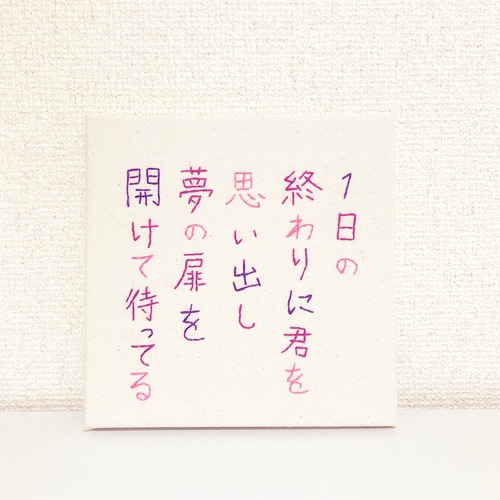 1日の
終わりに君を
思い出し
夢の扉を
開けて待ってる